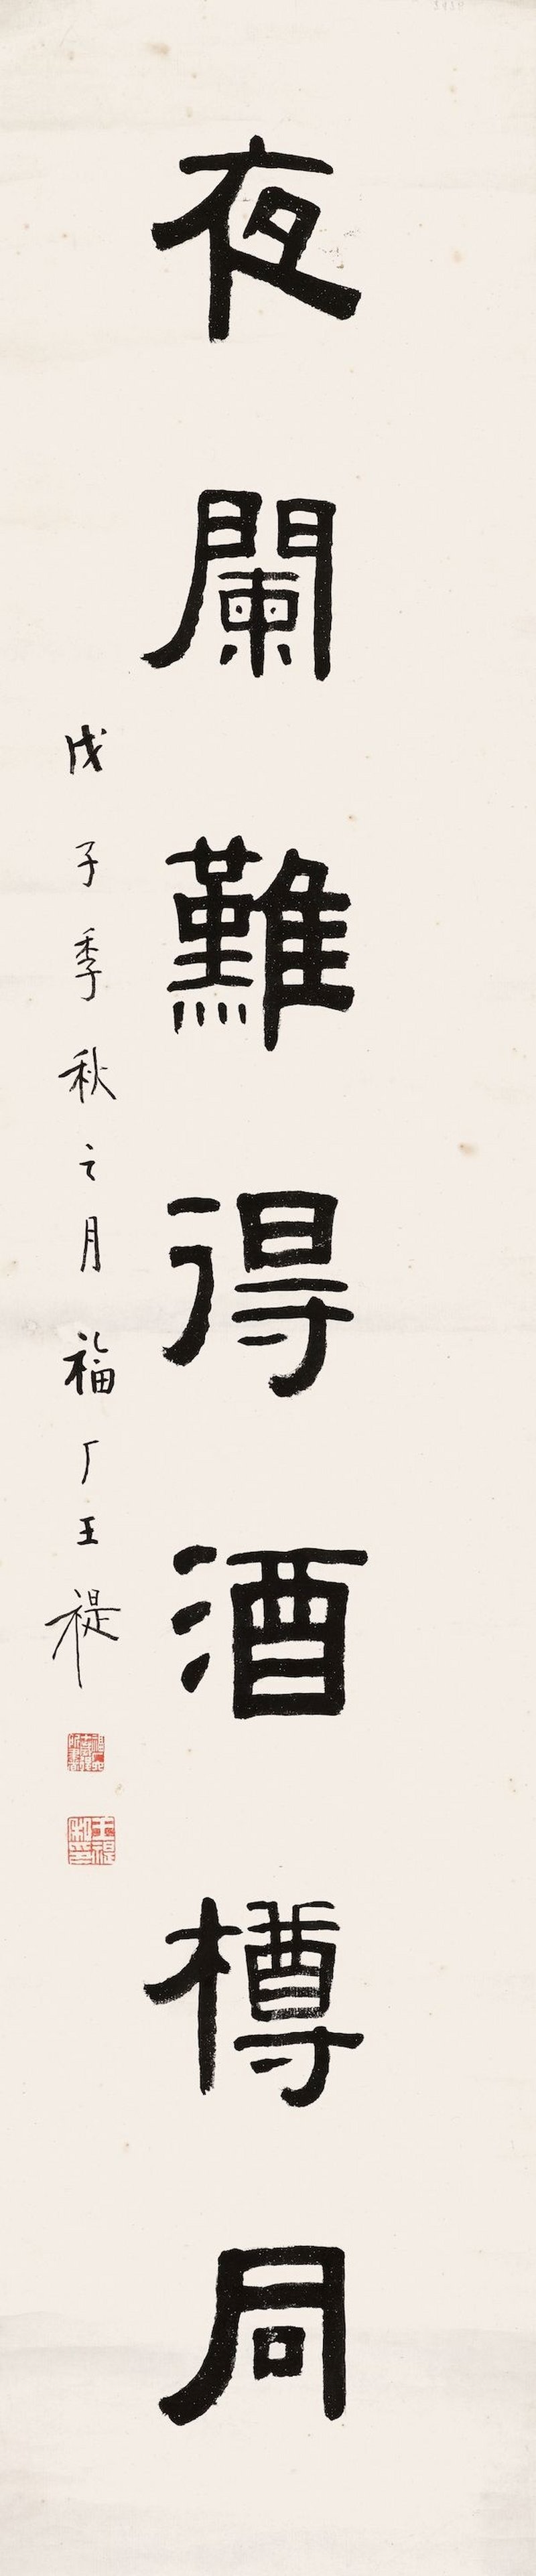 夜闌難得酒樽同
戊子季秋之月福厂王禔
王禔私印